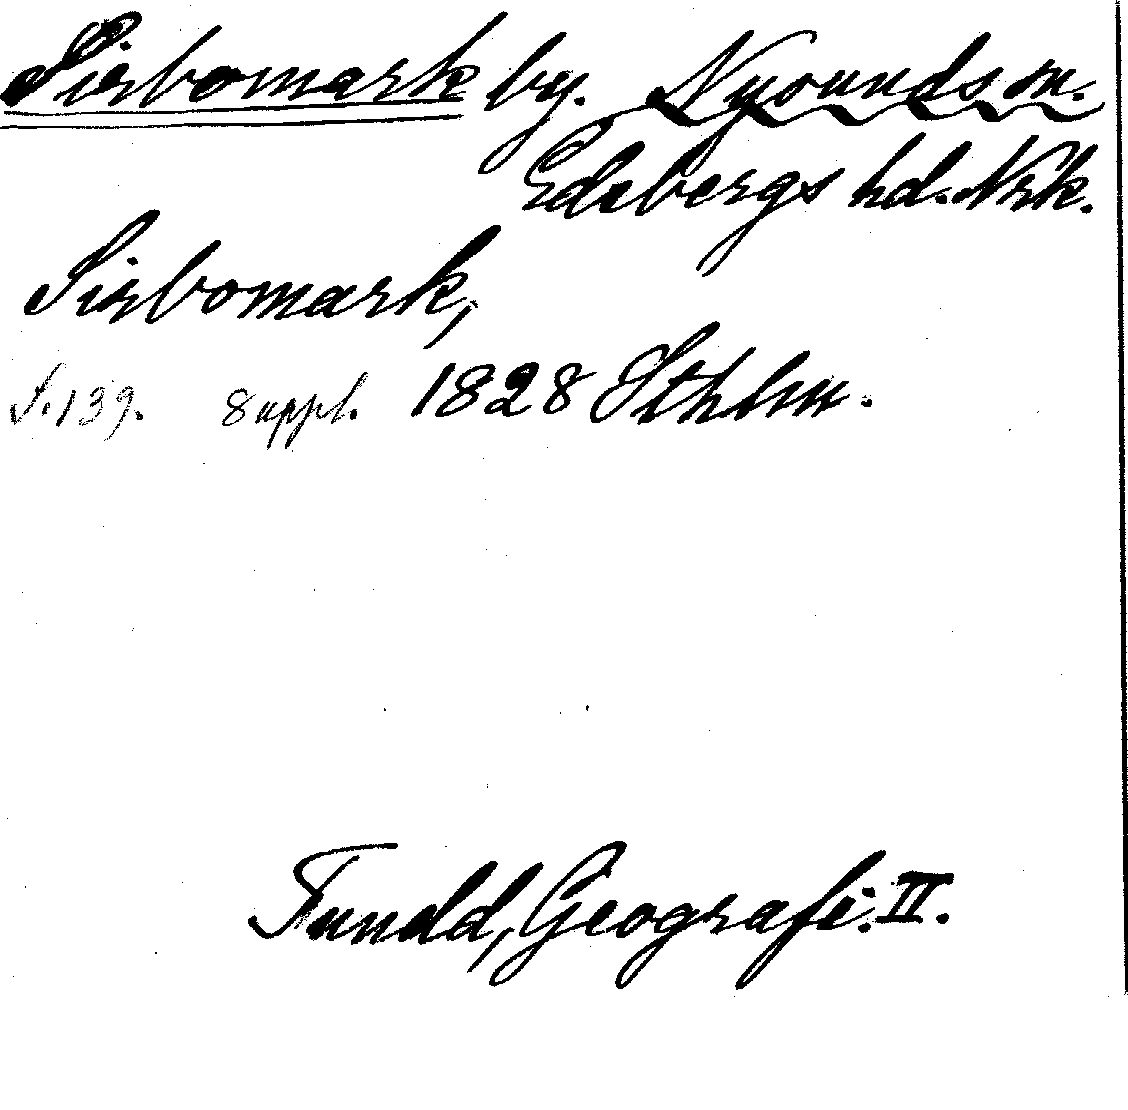 Sirbomark by. Nysunds sn.
Edsbergs hd. Nrk.
Sirbomark,
S. 139. 8 uppl. 1828 Sthlm.
Tuneld, Geografi. II.